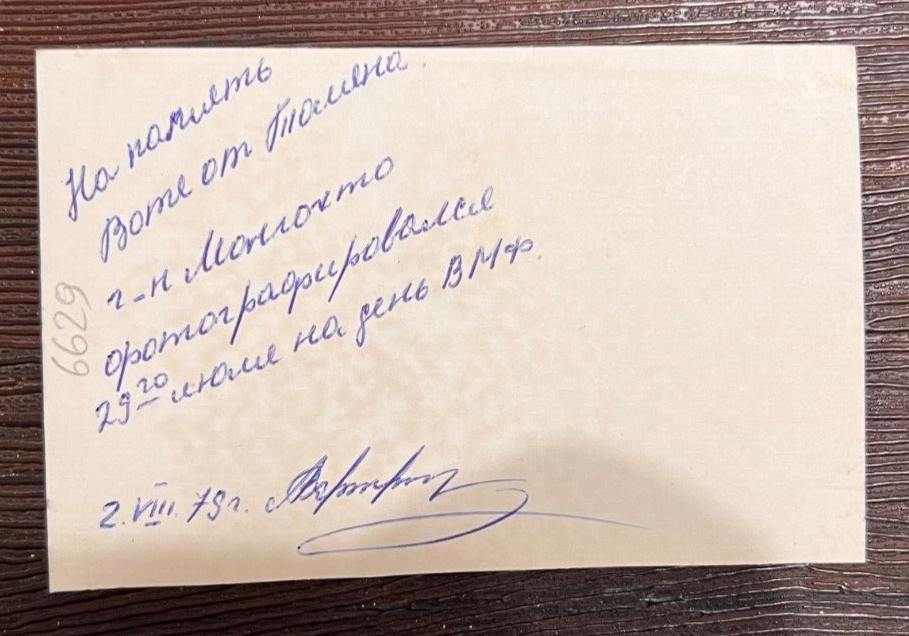 На память
Воте от Толяна.
г-н Монгохто
фотографировался
29го июля на день ВМФ.
2.VIII.79г.
6629